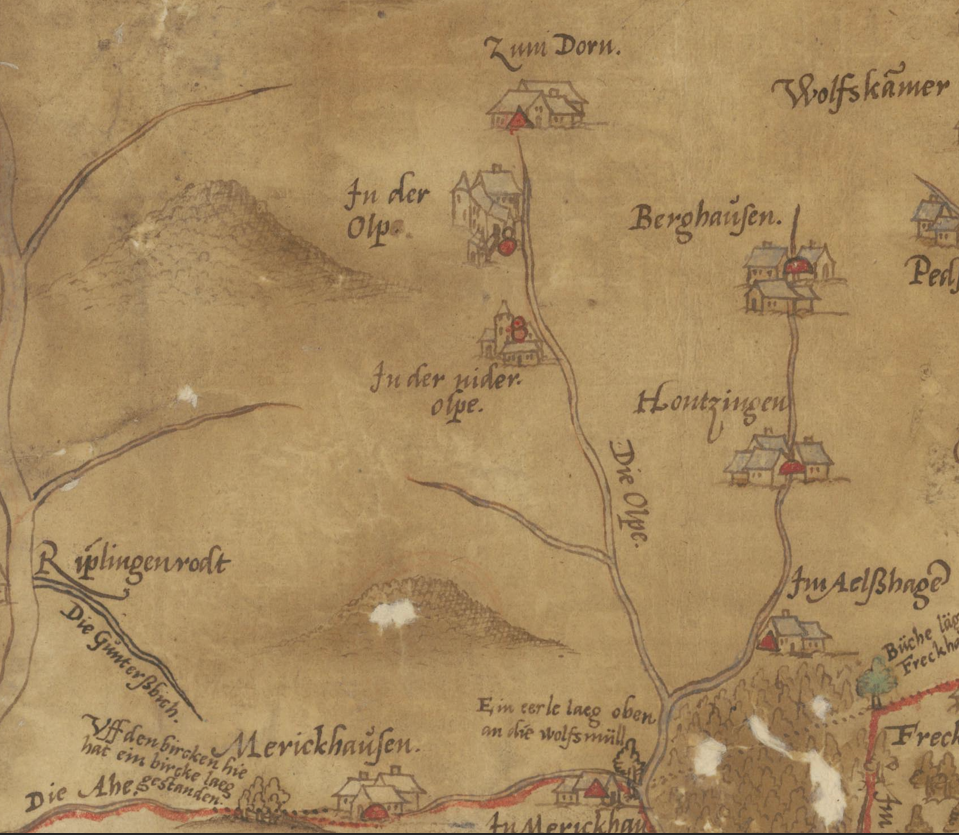 Zum Dorn.
Wolfskãmer
In der
Olpe
Berghaŭsen.
In der nider
olpe.
Hontzingen
Die Olpe.
Riplingenrodt
Die Günterßbich.
Im Aelßhage
Büche
Freckha
Ein eerle laeg oben
an die wolfsmüll
Freck
Vff den bircken hie
hat ein bircke laeg
gestanden.
Merickhaŭsen.
Die Ahe
In Merickhau
Im